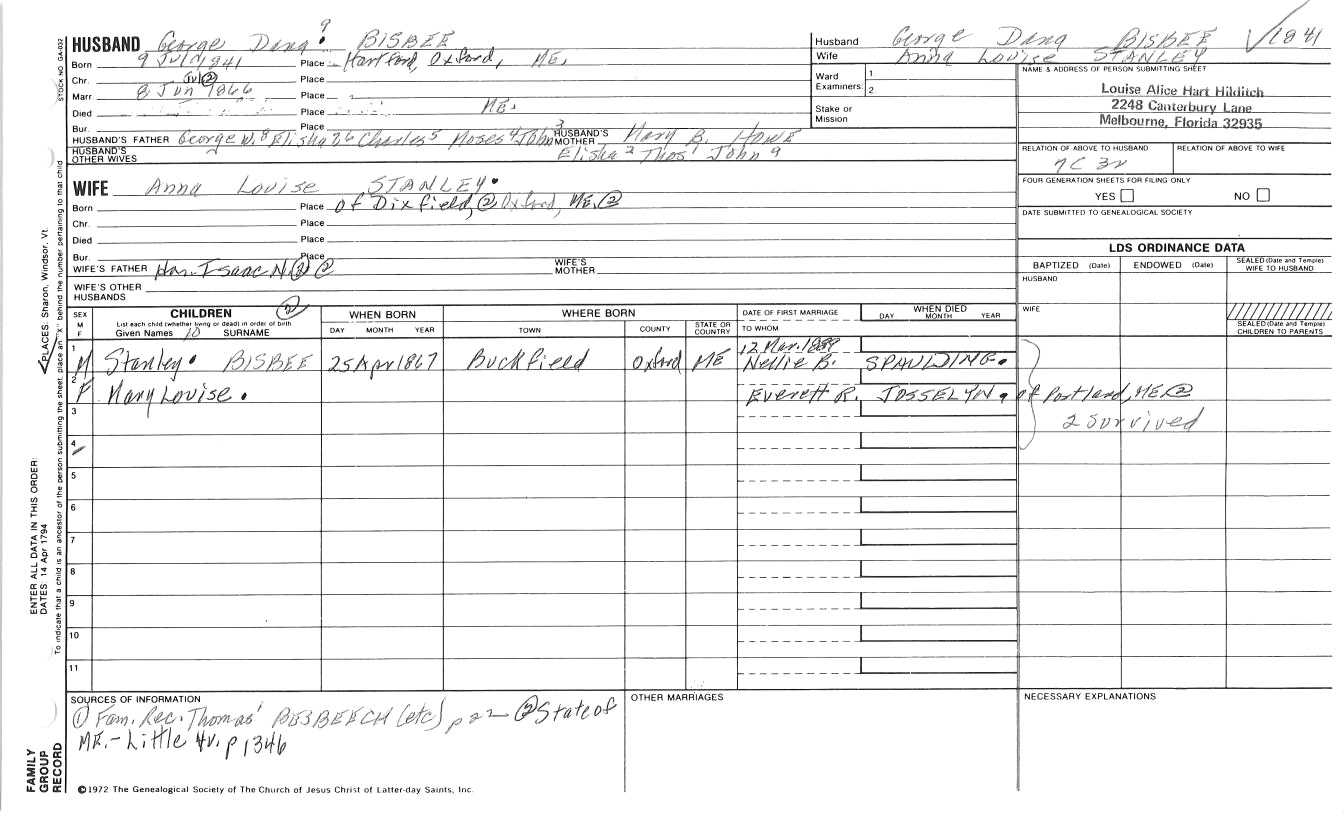 STOCK NO. GA-032
HUSBAND George Dana 9 BISBEE
Born 9 Jul 1841 Place Hartford, Oxford, ME.
Chr. Jul ② Place
Marr 8 Jun 1866 Place
Died Place ME.
Bur. Place
HUSBAND'S FATHER George W. 8 Elisha 7 6 Charles 5 Moses 4 John 3 HUSBAND'S MOTHER Mary B. HOWE
HUSBAND'S OTHER WIVES Elisha 2 Thos 1 John a
WIFE Anna Louise STANLEY
Born Place of Dixfield, ② Oxford, ME. ②
Chr. Place
Died Place
Bur. Place
WIFE'S FATHER Hon. Isaac N. ② ② WIFE'S MOTHER
WIFE'S OTHER HUSBANDS
Husband George Dana BISBEE √1841
Wife Anna Louise STANLEY
Ward Examiners: 1 2
Stake or Mission
NAME & ADDRESS OF PERSON SUBMITTING SHEET
Louise Alice Hart Hilditch
2248 Canterbury Lane
Melbourne, Florida 32935
RELATION OF ABOVE TO HUSBAND RELATION OF ABOVE TO WIFE
7C 3r
FOUR GENERATION SHEETS FOR FILING ONLY
YES NO
DATE SUBMITTED TO GENEALOGICAL SOCIETY
LDS ORDINANCE DATA
BAPTIZED (Date) ENDOWED (Date) SEALED (Date and Temple) WIFE TO HUSBAND
HUSBAND
WIFE
SEALED (Date and Temple) CHILDREN TO PARENTS
SEX M F
CHILDREN ②
List each child (whether living or dead) in order of birth
Given Names 10 SURNAME
WHEN BORN
DAY MONTH YEAR
WHERE BORN
TOWN COUNTY STATE OR COUNTRY
DATE OF FIRST MARRIAGE
TO WHOM
WHEN DIED
DAY MONTH YEAR
12 Mar. 1889
1 M Stanley. BISBEE 25 Apr 1867 Buckfield Oxford ME Nellie B. SPAULDING.
2 F Mary Louise. Everett R. JOSSELYN. of Portland, ME. ②
3 2 survived
4
5
6
7
8
9
10
11
SOURCES OF INFORMATION
① Fam. Rec. Thomas' BESBEECH (etc) p 22 ② State of
ME. - Little 4v. p 1346
OTHER MARRIAGES
NECESSARY EXPLANATIONS
©1972 The Genealogical Society of The Church of Jesus Christ of Latter-day Saints, Inc.
FAMILY GROUP RECORD
ENTER ALL DATA IN THIS ORDER:
DATES: 14 Apr 1794
√PLACES: Sharon, Windsor, Vt.
To indicate that a child is an ancestor of the person submitting the sheet, place an "X" behind the number pertaining to that child